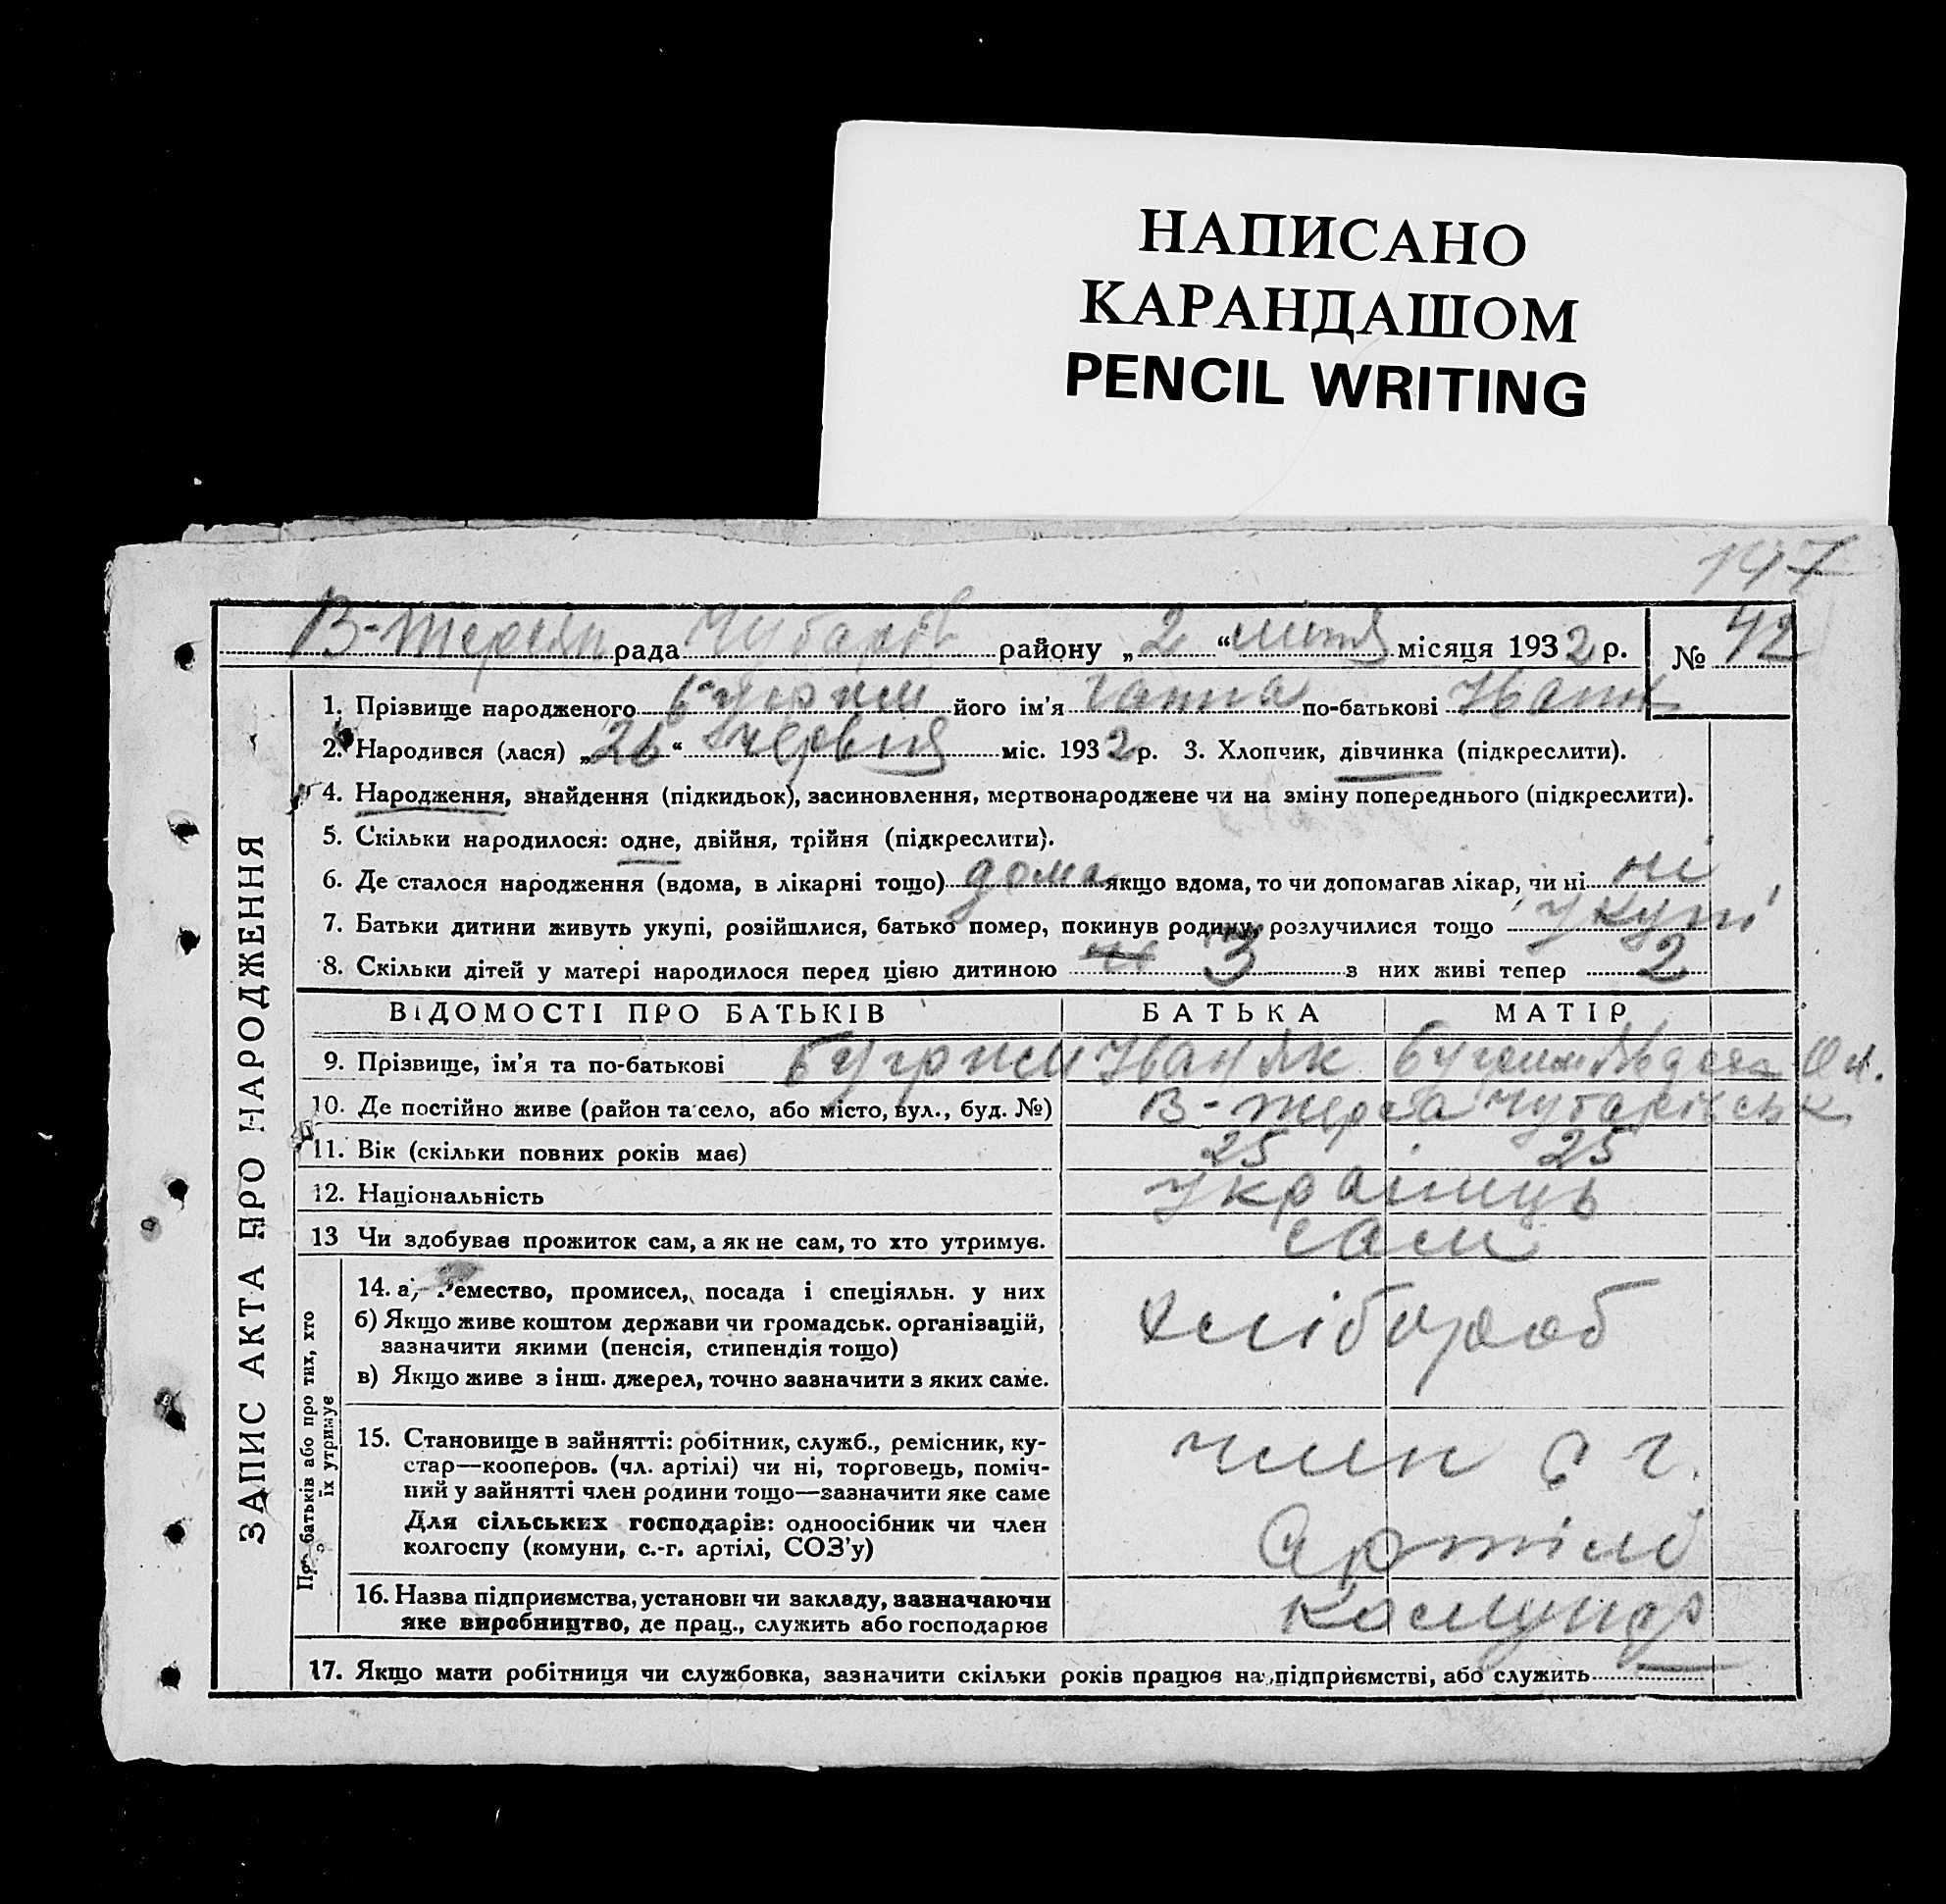 НАПИСАНО
КАРАНДАШОМ
PENCIL WRITING
147
В-Терсян рада Чубарів району „2“ липня місяця 1932 р. № 42
1. Прізвище народженого його ім'я Ганна по-батькові Іван
2. Народився (лася) „26“ червня міс. 1932 р. 3. Хлопчик, дівчинка (підкреслити).
4. Народження, знайдення (підкидьок), засиновлення, мертвонароджене чи на зміну попереднього (підкреслити).
5. Скільки народилося: одне, двійня, трійня (підкреслити).
6. Де сталося народження (вдома, в лікарні тощо) дома якщо вдома, то чи допомагав лікар, чи ні ні
7. Батьки дитини живуть укупі, розійшлися, батько помер, покинув родину, розлучилися тощо укупі
8. Скільки дітей у матері народилося перед цією дитиною 3 з них живі тепер 2
ВІДОМОСТІ ПРО БАТЬКІВ БАТЬКА МАТІР
9. Прізвище, ім'я та по-батькові Іван Як
10. Де постійно живе (район та село, або місто, вул., буд. №) В-Терса Чубарівськ
11. Вік (скільки повних років має) 25 25
12. Національність Українць
13 Чи здобуває прожиток сам, а як не сам, то хто утримує. сам
Про батьків або про тих, хто їх утримує
14. а) Ремество, промисел, посада і спеціяльн. у них
б) Якщо живе коштом держави чи громадськ. організацій,
зазначити якими (пенсія, стипендія тощо)
в) Якщо живе з інш. джерел, точно зазначити з яких саме.
хлібороб
15. Становище в зайнятті: робітник, служб., ремісник, ку-
стар—кооперов. (чл. артілі) чи ні, торговець, поміч-
ний у зайнятті член родини тощо—зазначити яке саме
Для сільських господарів: одноосібник чи член
колгоспу (комуни, с.-г. артілі, СОЗ'у)
член с г.
Артілі
16. Назва підприємства, установи чи закладу, зазначаючи
яке виробництво, де прац., служить або господарює
Комунар
17. Якщо мати робітниця чи службовка, зазначити скільки років працює на підприємстві, або служить
ЗАПИС АКТА ПРО НАРОДЖЕННЯ